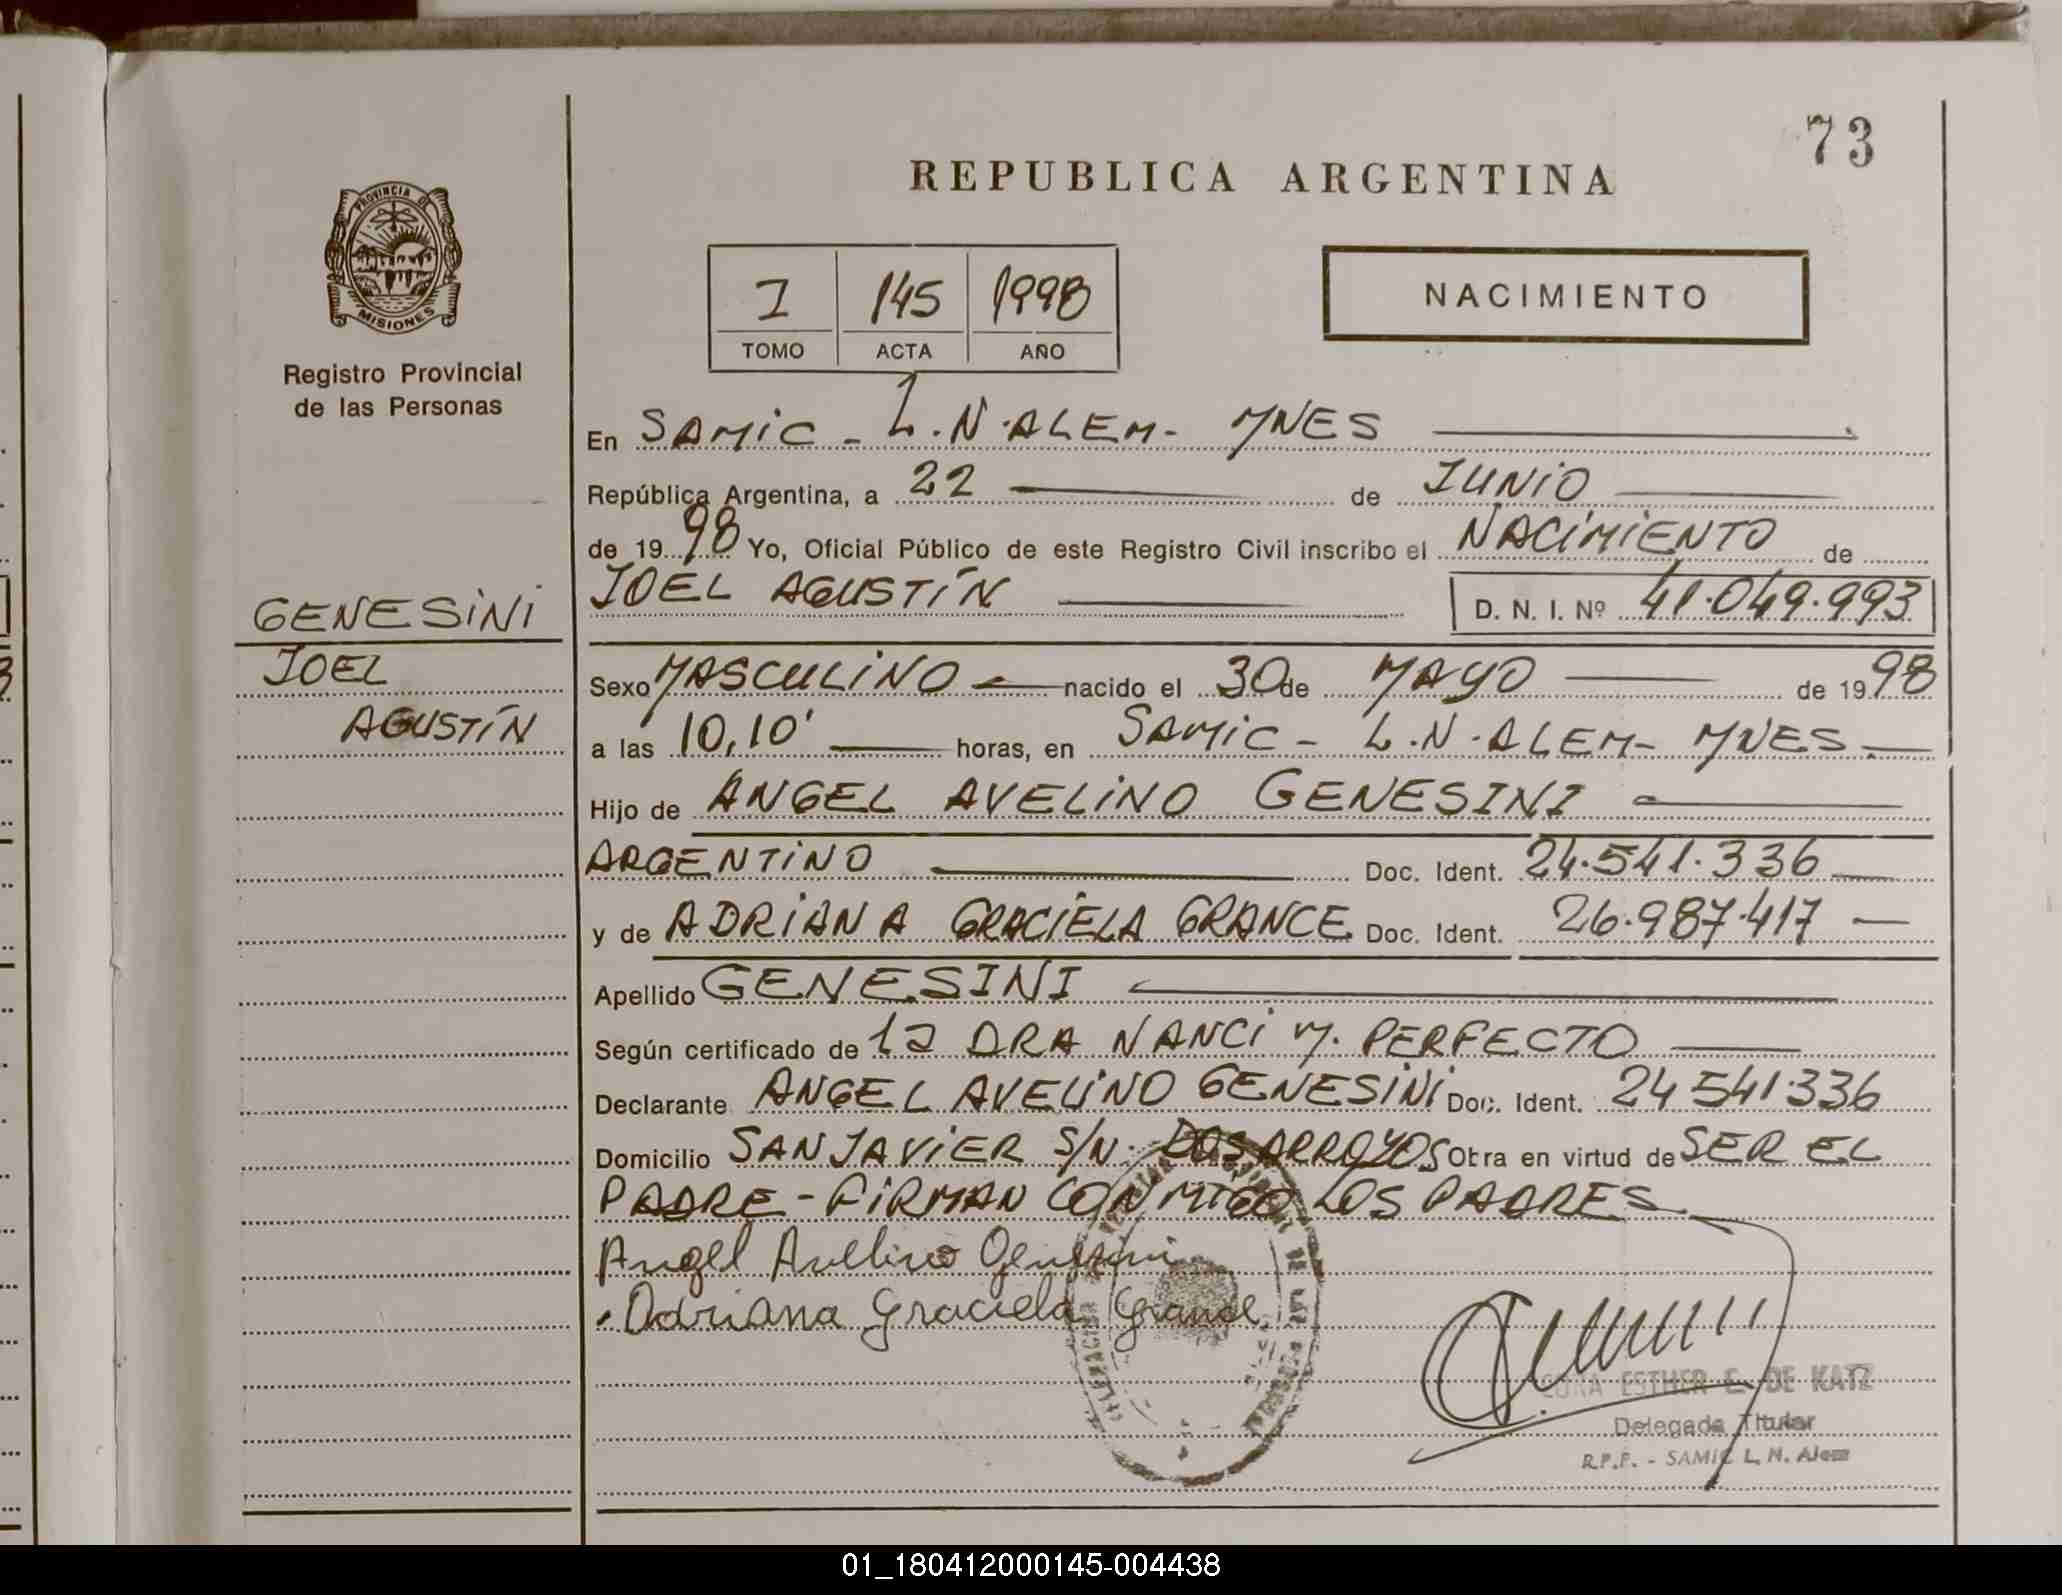 73
REPUBLICA ARGENTINA
PROVINCIA DE
MISIONES
Registro Provincial
de las Personas
I 145 1998
TOMO ACTA AÑO
NACIMIENTO
En SAMIC - L.N. ALEM - MNES
República Argentina, a 22 de JUNIO
de 19 98 Yo, Oficial Público de este Registro Civil inscribo el NACIMIENTO de
JOEL AGUSTÍN D. N. I. Nº 41.049.993
GENESINI
JOEL
AGUSTÍN
Sexo MASCULINO nacido el 30 de MAYO de 19 98
a las 10,10' horas, en SAMIC - L.N. ALEM - MNES
Hijo de ANGEL AVELINO GENESINI
ARGENTINO Doc. Ident. 24.541.336
y de ADRIANA GRACIELA GRANCE Doc. Ident. 26.987.417
Apellido GENESINI
Según certificado de la DRA NANCI M. PERFECTO
Declarante ANGEL AVELINO GENESINI Doc. Ident. 24 541.336
Domicilio SAN JAVIER S/N. DOS ARROYOS Obra en virtud de SER EL
PADRE - FIRMAN CONMIGO LOS PADRES
Angel Avelino Genesini
Adriana Graciela Grance
ESTHER E. DE KATZ
Delegada Titular
R.P.P. - SAMIC L. N. Alem
01_180412000145-004438